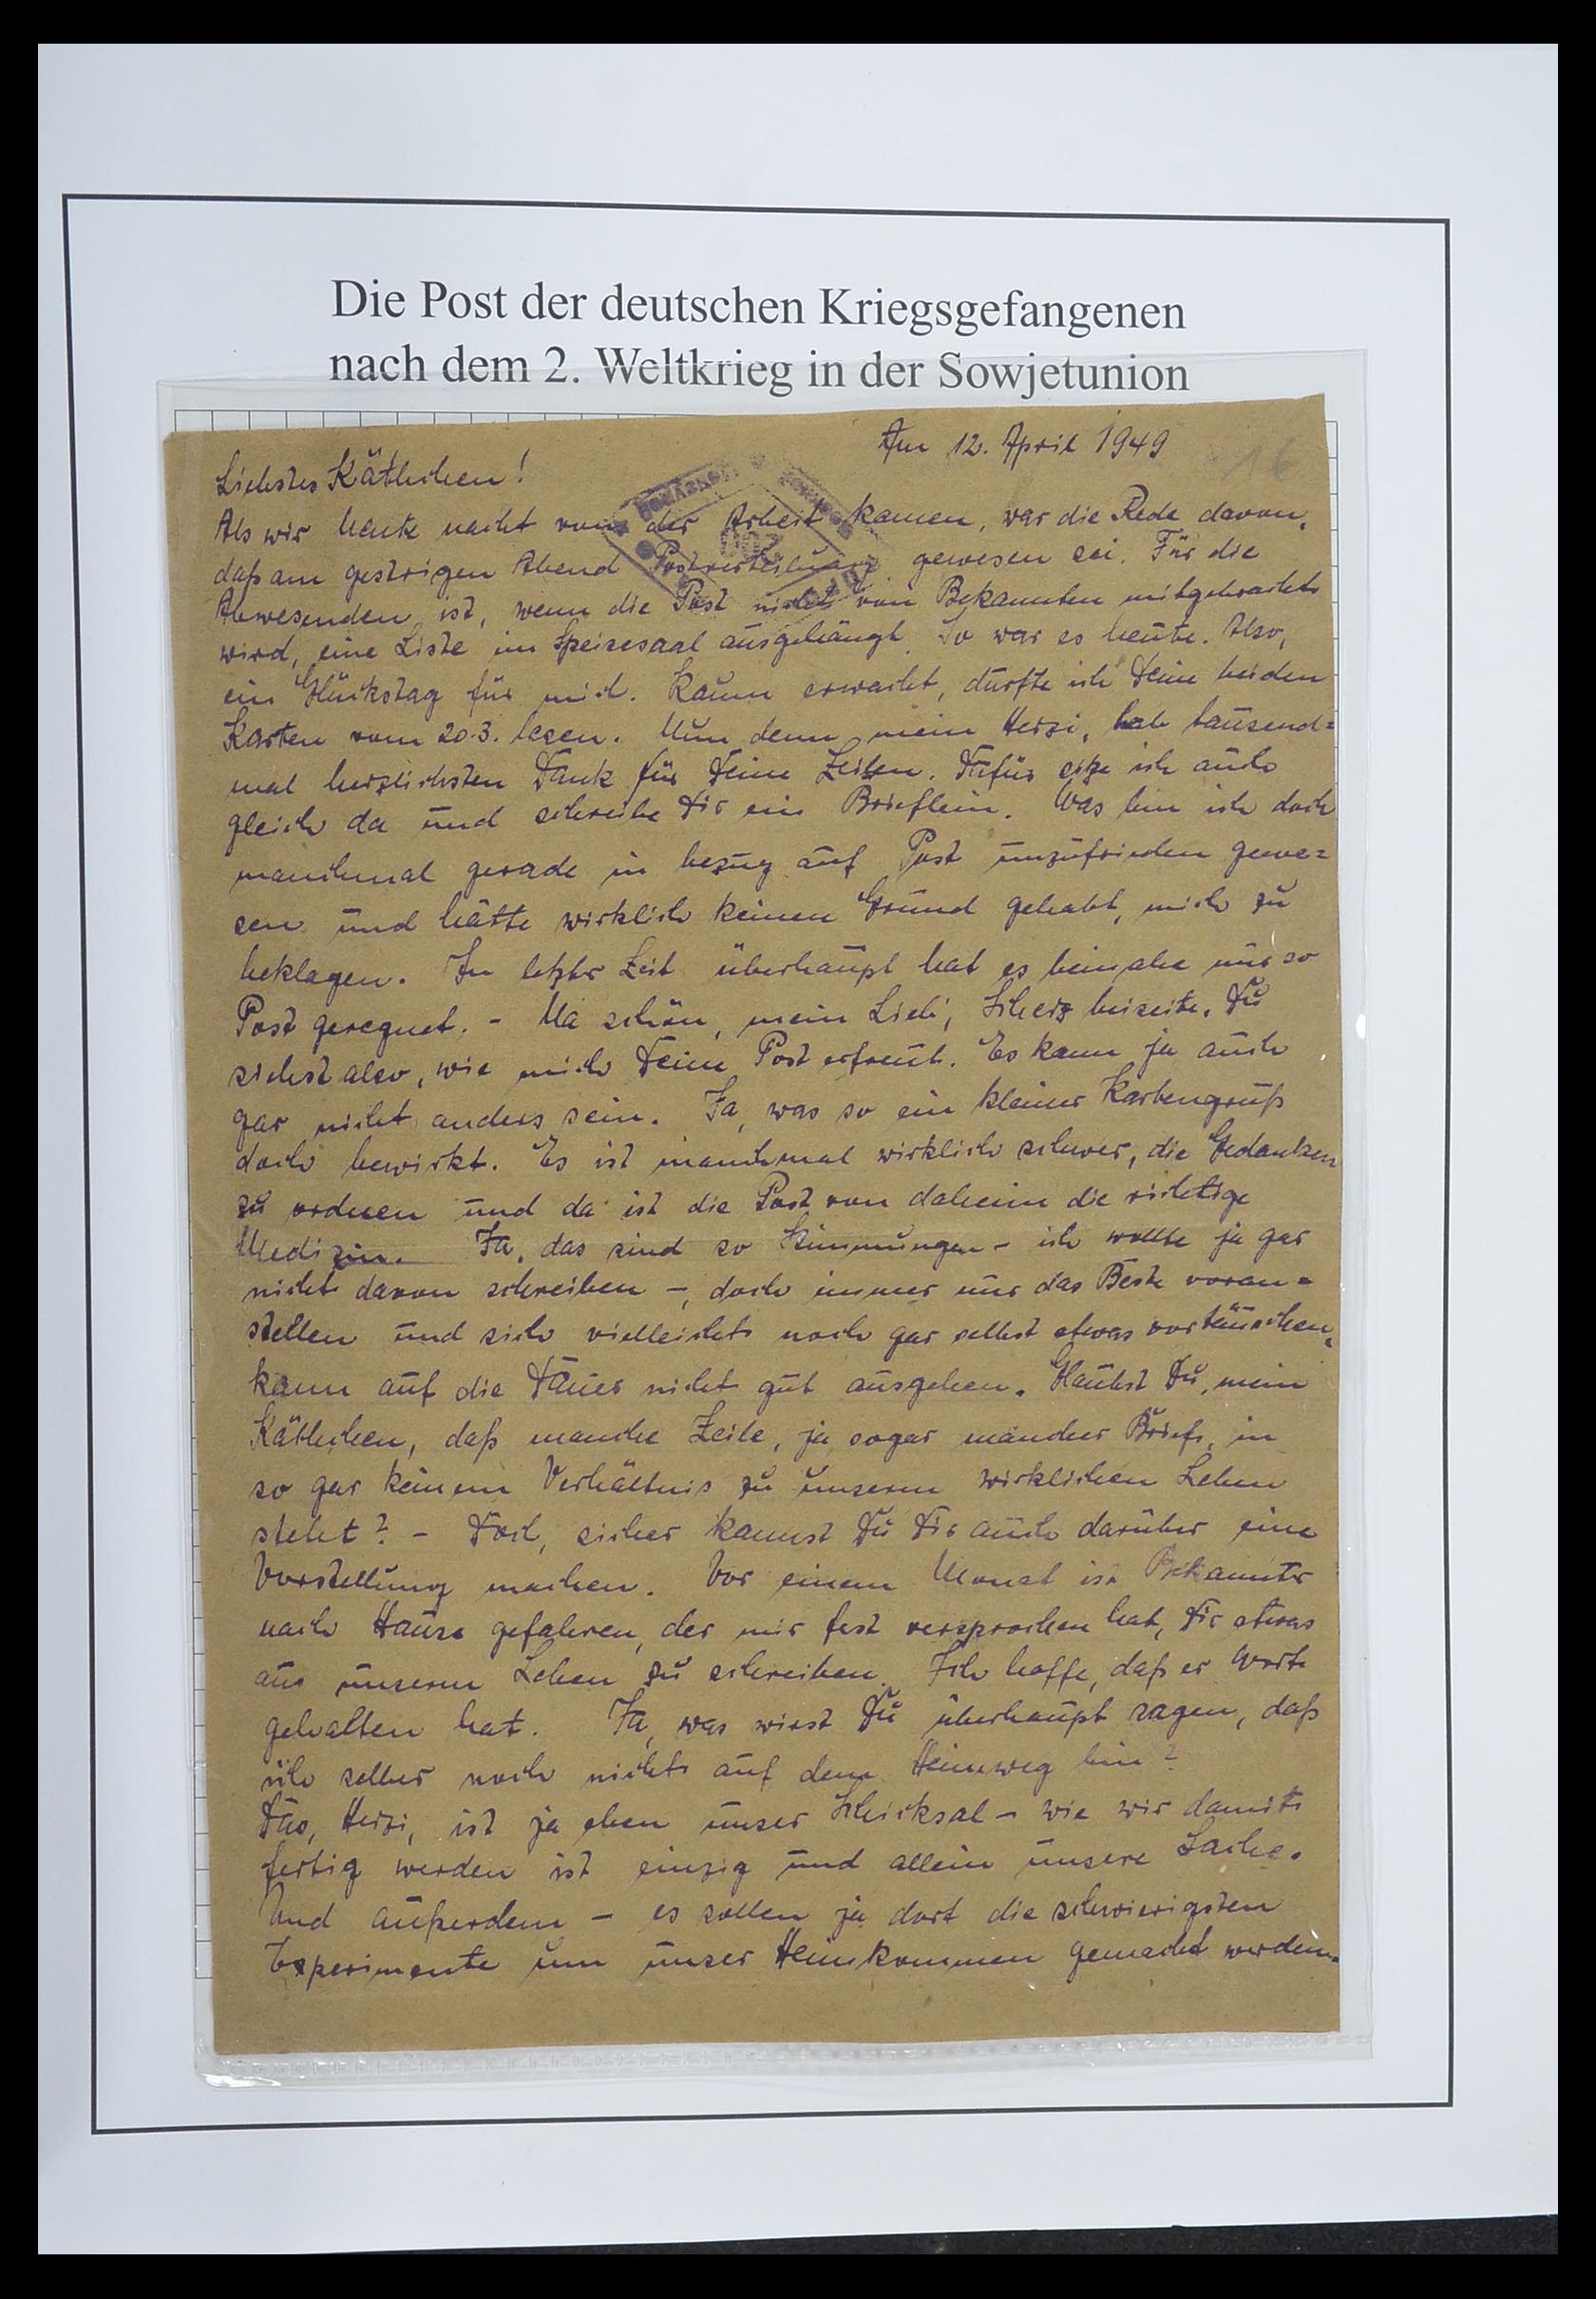 Die Post der deutschen Kriegsgefangenen
nach dem 2. Weltkrieg in der Sowjetunion
Am 12. April 1949
16
Liebstes Käthchen!
Als wir heute nacht von der Arbeit kamen, war die Rede davon,
daß am gestrigen Abend Postverteilung gewesen sei. Für die
Abwesenden ist, wenn die Post nicht von Bekannten mitgebracht
wird, eine Liste im Speisesaal ausgehängt. So war es heute. Also,
ein Glückstag für mich. Kaum erwacht, durfte ich Deine beiden
Karten vom 20.3. lesen. Nun denn mein Herzi, hab tausend=
mal herzlichsten Dank für Deine Zeilen. Dafür sitze ich auch
gleich da und schreibe Dir ein Brieflein. Was bin ich doch
manchmal gerade in bezug auf Post unzufrieden gewe=
sen und hätte wirklich keinen Grund gehabt, mich zu
beklagen. In letzter Zeit überhaupt hat es beinahe nur so
Post geregnet. - Na schön, mein Lieb, Scherz beiseite. Du
siehst also, wie mich Deine Post erfreut. Es kann ja auch
gar nicht anders sein. Ja, was so ein kleiner Kartengruß
doch bewirkt. Es ist manchmal wirklich schwer, die Gedanken
zu ordnen und da ist die Post von daheim die richtige
Medizin. Ja, das sind so Stimmungen - ich wollte ja gar
nicht davon schreiben -, doch immer nur das Beste voran=
stellen und sich vielleicht noch gar selbst etwas vortäuschen,
kann auf die Dauer nicht gut ausgehen. Glaubst Du, mein
Käthchen, daß manche Zeile, ja sogar mancher Brief, in
so gar keinem Verhältnis zu unserm wirklichen Leben
steht? - Doch, sicher kannst Du Dir auch darüber eine
Vorstellung machen. Vor einem Monat ist Bekannter
nach Hause gefahren, der mir fest versprochen hat, Dir etwas
aus unserm Leben zu schreiben. Ich hoffe, daß er Wort
gehalten hat. Ja, was wirst Du überhaupt sagen, daß
ich selber noch nicht auf dem Heimweg bin?
Das, Herzi, ist ja eben unser Schicksal - wie wir damit
fertig werden ist einzig und allein unsere Sache.
Und außerdem - es sollen ja dort die schwierigsten
Experimente um unser Heimkommen gemacht werden.